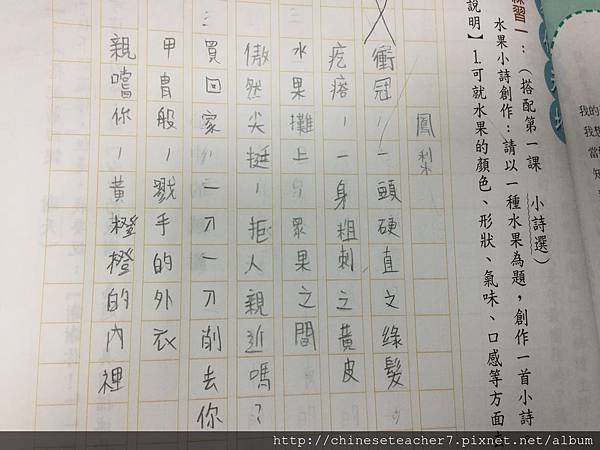 練習一：（搭配第一課 小詩選）
水果小詩創作：請以一種水果為題，創作一首小詩
說明】1.可就水果的顏色、形狀、氣味、口感等方面
鳳梨
衝冠，一頭硬直之綠髮，
疙瘩，一身粗刺之黃皮
水果攤上，眾果之間
傲然尖挺，拒人親近嗎？
買回家，一刀一刀削去你
甲冑般，戳手的外衣
親嚐你，黃橙橙的內裡
我的
我想
當
http://chineseteacher7.pixnet.net/album